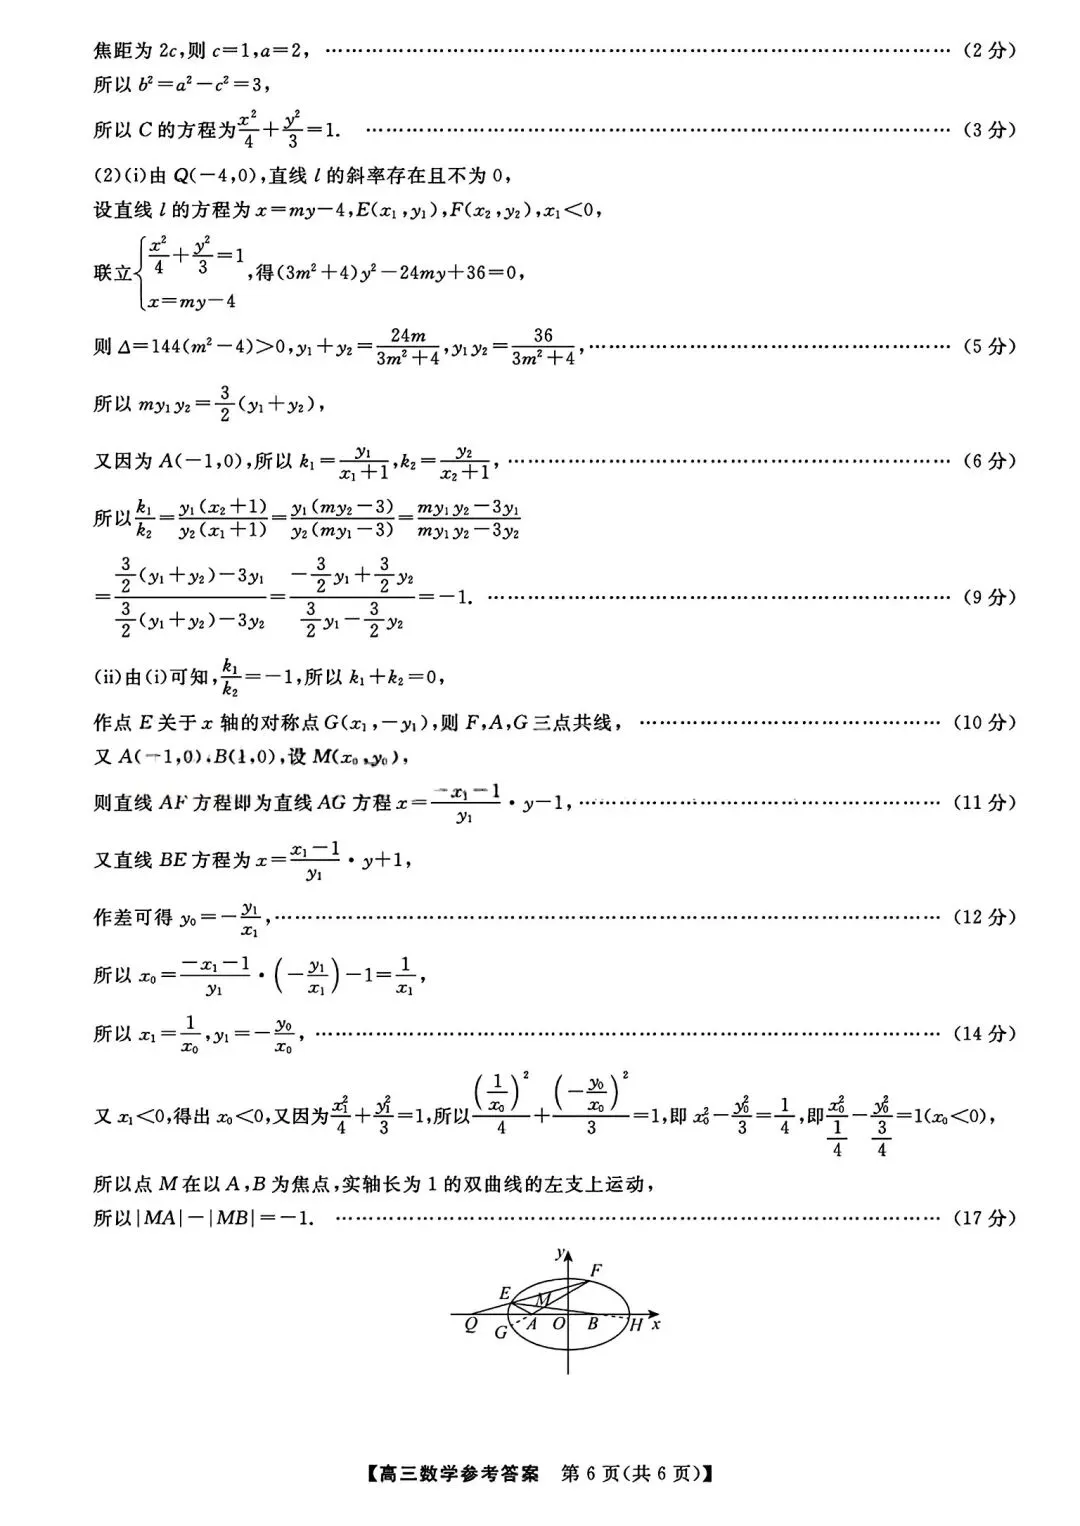 焦距为 2c,则 c=1,a=2, ………………………………………………………………………… (2 分)
所以 b²=a²-c²=3,
所以 C 的方程为 x²/4+y²/3=1. ………………………………………………………………… (3 分)
(2)(i)由 Q(-4,0),直线 l 的斜率存在且不为 0,
设直线 l 的方程为 x=my-4,E(x₁,y₁),F(x₂,y₂),x₁<0,
联立{x²/4+y²/3=1, x=my-4 ,得(3m²+4)y²-24my+36=0,
则 Δ=144(m²-4)>0,y₁+y₂=24m/(3m²+4),y₁y₂=36/(3m²+4), ……………………………………… (5 分)
所以 my₁y₂=3/2(y₁+y₂),
又因为 A(-1,0),所以 k₁=y₁/(x₁+1),k₂=y₂/(x₂+1), …………………………………………………… (6 分)
所以 k₁/k₂=y₁(x₂+1)/y₂(x₁+1)=y₁(my₂-3)/y₂(my₁-3)=(my₁y₂-3y₁)/(my₁y₂-3y₂)
=(3/2(y₁+y₂)-3y₁)/(3/2(y₁+y₂)-3y₂)=(-3/2y₁+3/2y₂)/(3/2y₁-3/2y₂)=-1. ……………………………………………………… (9 分)
(ii)由(i)可知,k₁/k₂=-1,所以 k₁+k₂=0,
作点 E 关于 x 轴的对称点 G(x₁,-y₁),则 F,A,G 三点共线, ………………………………… (10 分)
又 A(-1,0),B(1,0),设 M(x₀,y₀),
则直线 AF 方程即为直线 AG 方程 x=(-x₁-1)/y₁·y-1, ………………………………………… (11 分)
又直线 BE 方程为 x=(x₁-1)/y₁·y+1,
作差可得 y₀=-y₁/x₁, ……………………………………………………………………………… (12 分)
所以 x₀=(-x₁-1)/y₁·(-y₁/x₁)-1=1/x₁,
所以 x₁=1/x₀,y₁=-y₀/x₀, ………………………………………………………………………… (14 分)
又 x₁<0,得出 x₀<0,又因为 x₁²/4+y₁²/3=1,所以 (1/x₀)²/4+(-y₀/x₀)²/3=1,即 x₀²-y₀²/3=1/4,即 x₀²/(1/4)-y₀²/(3/4)=1(x₀<0),
所以点 M 在以 A,B 为焦点,实轴长为 1 的双曲线的左支上运动,
所以|MA|-|MB|=-1. ……………………………………………………………………… (17 分)
y
F
E
M
Q
G
A
O
B
H
x
【高三数学参考答案 第 6 页(共 6 页)】